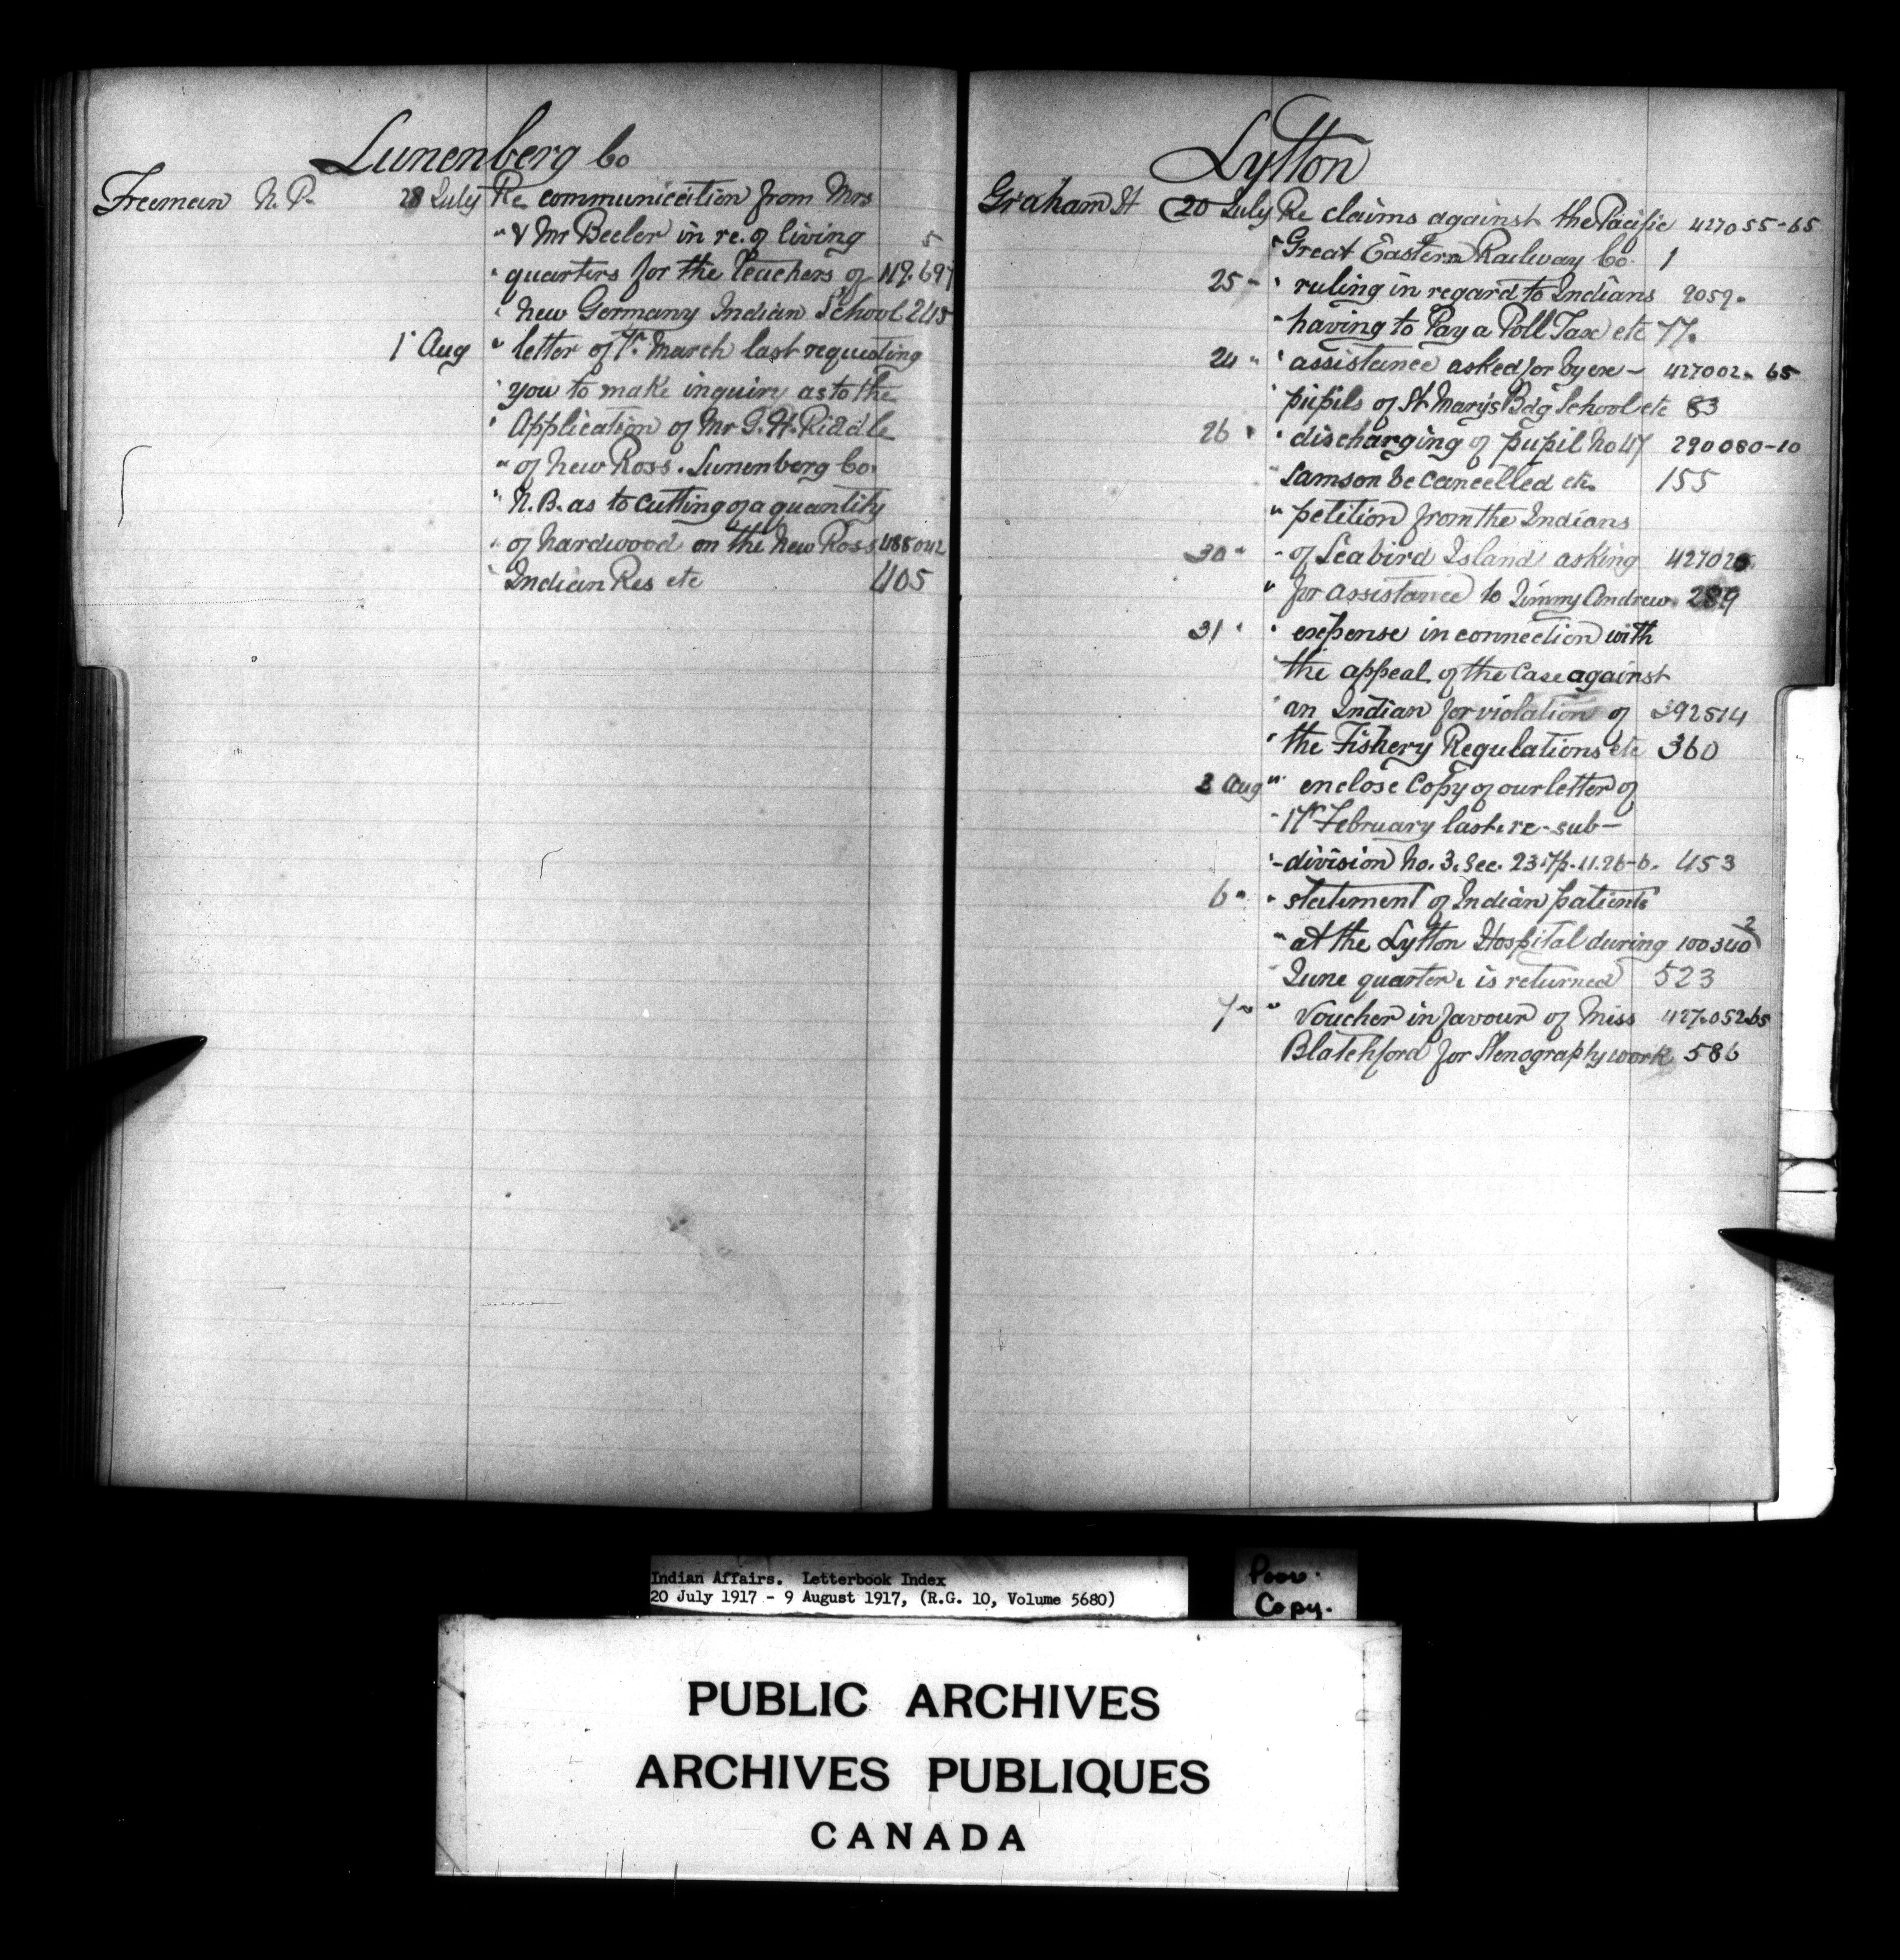 Lunenberg Co
Freeman N. P. 28 July Re communication from Mrs
" & Mr Beeler in re. of living 5
" quarters for the Teachers of 117.697
" New Germany Indian School 245
1st Aug " letter of 7th March last requesting
" you to make inquiry as to the
" Application of Mr G. H. Riddle
" of New Ross. Lunenberg Co.
" N.B. as to cutting of a quantity
" of hardwood on the New Ross 488042
" Indian Res etc 405
Lytton
Graham H 20 July Re claims against the Pacific 427055-65
" Great Eastern Railway Co. 1
25 " " ruling in regard to Indians 2059.
" having to Pay a Poll Tax etc 77.
24 " " assistance asked for by ex- 427002. 65
" pupils of St Mary's Bdg School etc 83
26 " " discharging of pupil No 47 290080-10
" Samson be cancelled etc. 155
" petition from the Indians
30 " " of Seabird Island asking 427026.
" for assistance to Jimmy Andrew. 289
31 " " expense in connection with
" the appeal of the Case against
" an Indian for violation of 392514
" the Fishery Regulations etc 360
3 Aug " enclose Copy of our letter of
" 17th February last. re-sub-
" -division No. 3. Sec. 23. Tp. 11. 26-6. 453
6 " " statement of Indian patients
" at the Lytton Hospital during 100340 2
" June quarter, is returned 523
7 " " Voucher in favour of Miss 427.052.65
Blatchford for Stenography work 586
Indian Affairs. Letterbook Index
20 July 1917 - 9 August 1917, (R.G. 10, Volume 5680)
Poor.
Copy.
PUBLIC ARCHIVES
ARCHIVES PUBLIQUES
CANADA